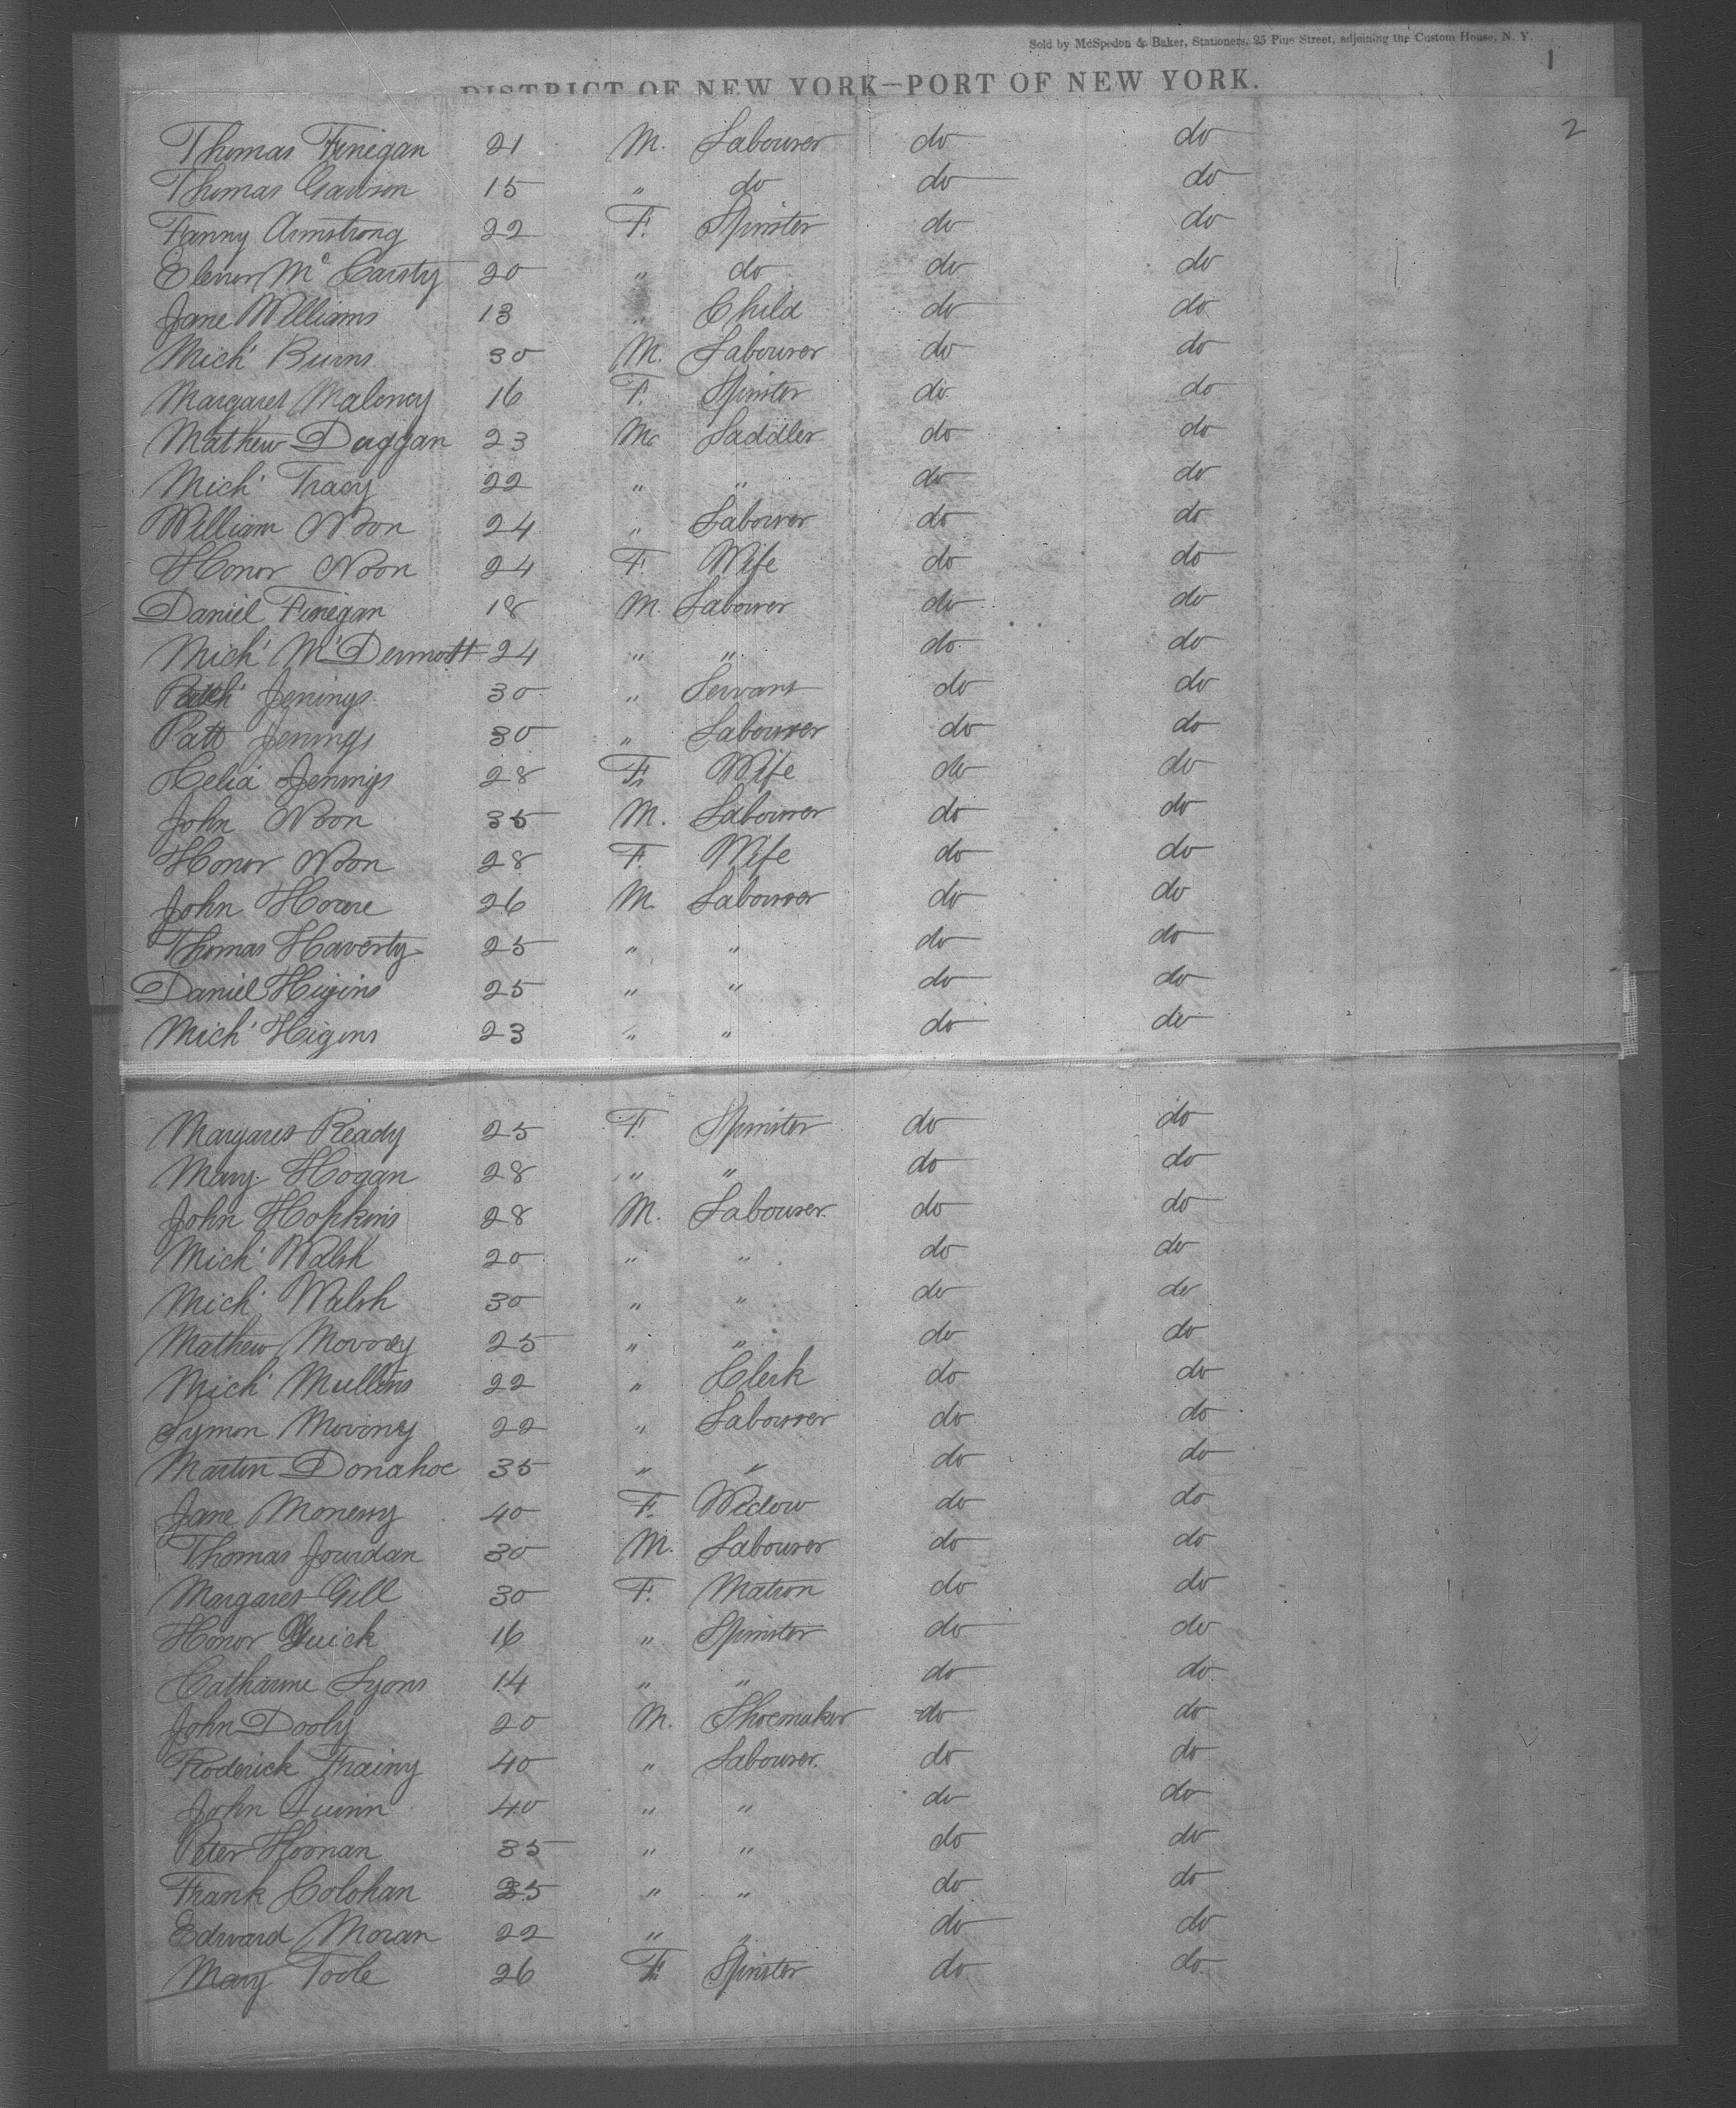 Sold by McSpedon & Baker, Stationers, 25 Pine Street, adjoining the Custom House, N. Y.
1
DISTRICT OF NEW YORK—PORT OF NEW YORK.
2
Thomas Finegan 21 M. Labourer do do
Thomas Gavison 15 " do do do
Fanny Armstrong 22 F. Spinster do do
Elenor Mc Carsty 20 " do do do
Jane Williams 13 " Child do do
Mich' Burns 30 M. Labourer do do
Margaret Maloney 16 F. Spinster do do
Mathew Duggan 23 M Saddler do do
Mich' Tracy 22 " " do do
William Noon 24 " Labourer do do
Honor Noon 24 F Wife do do
Daniel Finegan 18 M. Labourer do do
Mich' Mc Dermott 24 " " do do
Jenings 30 " Servant do do
Patt Jenings 30 " Labourer do do
Celia Jenings 28 F. Wife do do
John Noon 35 M. Labourer do do
Honor Noon 28 F. Wife do do
John Howe 26 M. Labourer do do
Thomas Haverty 25 " " do do
Daniel Higins 25 " " do do
Mich' Higins 23 " " do do
Margaret Ready 25 F. Spinster do do
Mary Hogan 28 " " do do
John Hopkins 28 M. Labourer do do
Mich' Walsh 20 " " do do
Mich' Walsh 30 " " do do
Mathew 25 " " do do
Mich' Mullins 22 " Clerk do do
Symon 22 " Labourer do do
Martin Donahoe 35 " " do do
Jane 40 F. Widow do do
Thomas Jourdan 30 M. Labourer do do
Margaret Gill 30 F. Matron do do
Honor Quick 16 " Spinster do do
Catharine Lyons 14 " " do do
John Dooly 20 M. Shoemaker do do
Roderick Frainy 40 " Labourer. do do
John Quinn 40 " " do do
Peter Homan 35 " " do do
Frank Colohan 35 " " do do
Edward Moran 22 " " do do
Mary Toole 26 F. Spinster do do